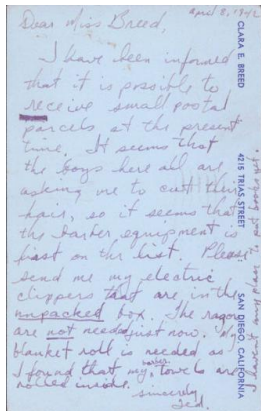 April 8, 1942
Dear Miss Breed,
I have been informed
that it is possible to
receive small postal
parcels at the present
time. It seems that
the boys here all are
asking me to cutt their
hair, so it seems that
the barber equipment is
first on the list. Please
send me my electric
clippers that are in the
unpacked box. The razors
are not needed just now. My
blanket roll is needed as
I found that my barber towels are
rolled inside.
Sincerely
Ted.
CLARA E. BREED
4215 TRIAS STREET
SAN DIEGO, CALIFORNIA